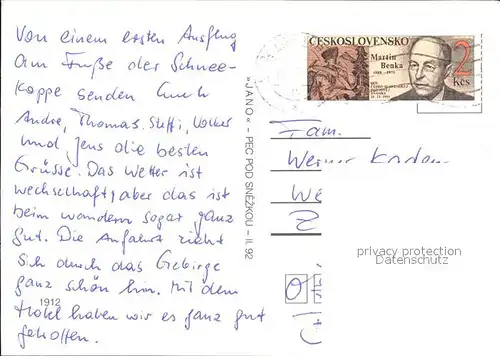 Von einem ersten Ausflug
am Fuße der Schnee-
koppe senden Euch
Andre, Thomas, Steffi, Volker
und Jens die besten
Grüsse. Das Wetter ist
wechselhaft, aber das ist
beim wandern sogar ganz
gut. Die Anfahrt zieht
sich durch das Gebirge
ganz schön hin. Mit dem
Hotel haben wir es ganz gut
getroffen.
1912
»JANO« – PEC POD SNĚŽKOU – II. 92
ČESKOSLOVENSKO
Martin
Benka
1888 – 1971
2
Kčs
Fam.
Werner
We
Z
privacy protection
Datenschutz